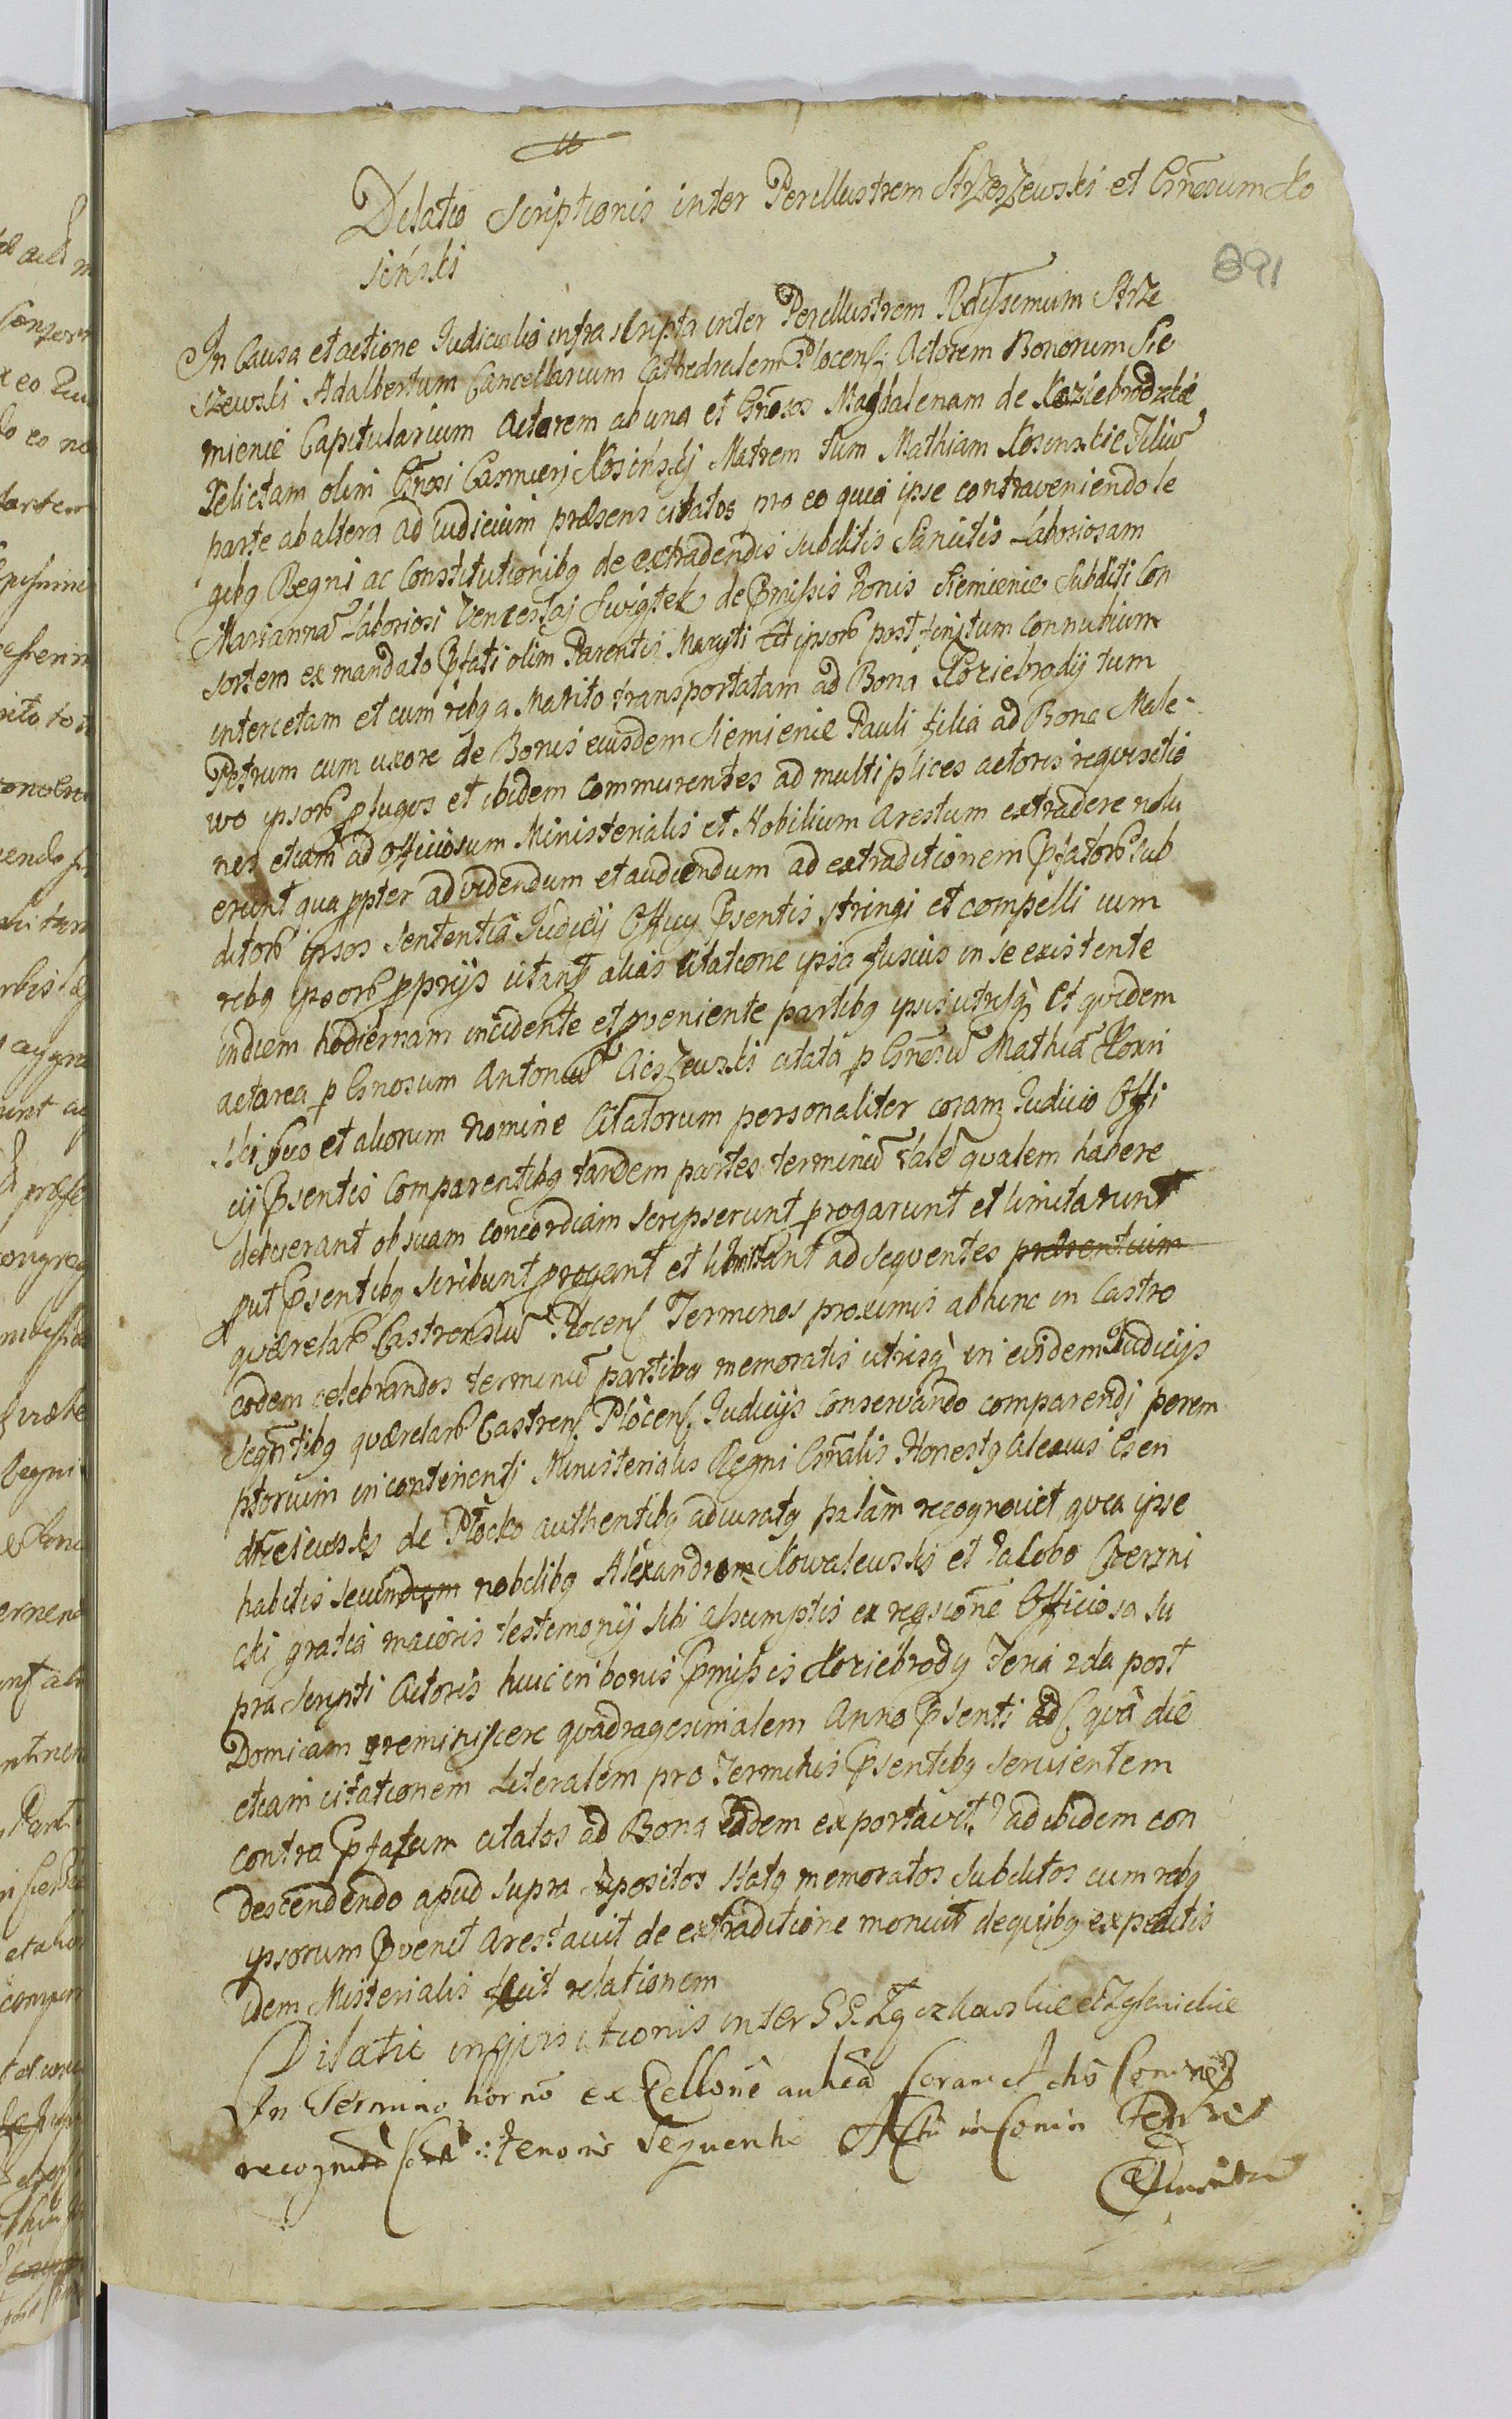 Dilatio Scriptionis inter Perillustrem Strzeszewski et Gnosum Ko
sinski
891
In Causa et actione Judicialis infra scripta inter Perillustrem Rdissimum Strze
szewski Adalbertum Cancellarium Cathedralem Plocens. Actorem Bonorum Sie
mienie Capitularium Actorem ab una et Gnosos Magdalenam de Koziebrodzkie
Relictam olim Gnosi Casmieri Kosinskij Matrem tum Mathiam Kosinskie Filium
parte ab altera ad Judicium praesens citatos pro eo quia ipse contraveniendo le
gibq Regni ac Constitutionibq de extradendis subditis Sancitis Laboriosam
Mariannam Laboriosi Venceslaj de Pmissis Bonis Siemienie Subditi Con
sortem ex mandato Pfati olim Parentis Mariti Et ipsorb post finitum connubium
intercetam et cum rebq a Marito transportatam ad Bona Koziebrody tum
Petrum cum uxore de Bonis eiusdem Siemienie Pauli filia ad Bona Male
wo ipsorb pfugos et ibidem commurentes ad multiplices actoris requisitio
nes etiam ad officiosum Ministerialis et Nobilium Arestum extradere nolu
erunt qua ppter ad videndum et audiendum ad extraditionem Pfatorb sub
ditorb ipsos sententia Judicij Officij Psentis stringi et compelli cum
rebq ipsorb pprijs citant alias citatione ipsa fusius in se existente
in diem hodiernam incidente et pveniente partibq ipsis utrisq Et quidem
actorea p Gnosum Antonium citata p Gnosum Mathiam Kosin
ski suo et aliorum nomine Citatorum personaliter coram Judicio Offi
cij Psentis Comparentibq tandem partes terminum tale qualem habere
debuerant ob suam concordiam scripserunt progarunt et limitarunt
put Psentibq scribunt progant et limitant ad sequentes praesentium
quaerelarb Castrensium Plocens Terminos proximis abhinc in Castro
eodem celebrandos terminum partibq memoratis utrisq in eisdem Judicijs
Seqntibq quaerelarb Castrens Plocens Judicijs conservando comparendi perem
ptorium in continenti Ministerialis Regni Gnralis Honestq Alexius
de Plocko authentibq ad iuratq palam recognovit quia ipse
habitis secum nobilibq Alexandrem Kowalewski et Jacobo Czerni
cki gratia maioris testemonij sibi assumptis ex reqsicione Officiosa su
pra scripti Actoris huic in bonis Pmissis Koziebrody Feria 2da post
Domicam reminiscere quadragesimalem Anno Psenti quâ die
etiam citationem Literalem pro Terminis Psentibq servientem
contra Pfatum citatos ad Bona eadem exportavit ad ibidem con
descendendo apud supra positos memoratos subditos cum rebq
ipsorum Pvenit Arestavit de extraditione monuit de quibq expeditis
idem Misterialis fecit relationem
Dilatie inqvisitionis inter
In Termino horno ex Coram Actis
recognita tenoris sequentis